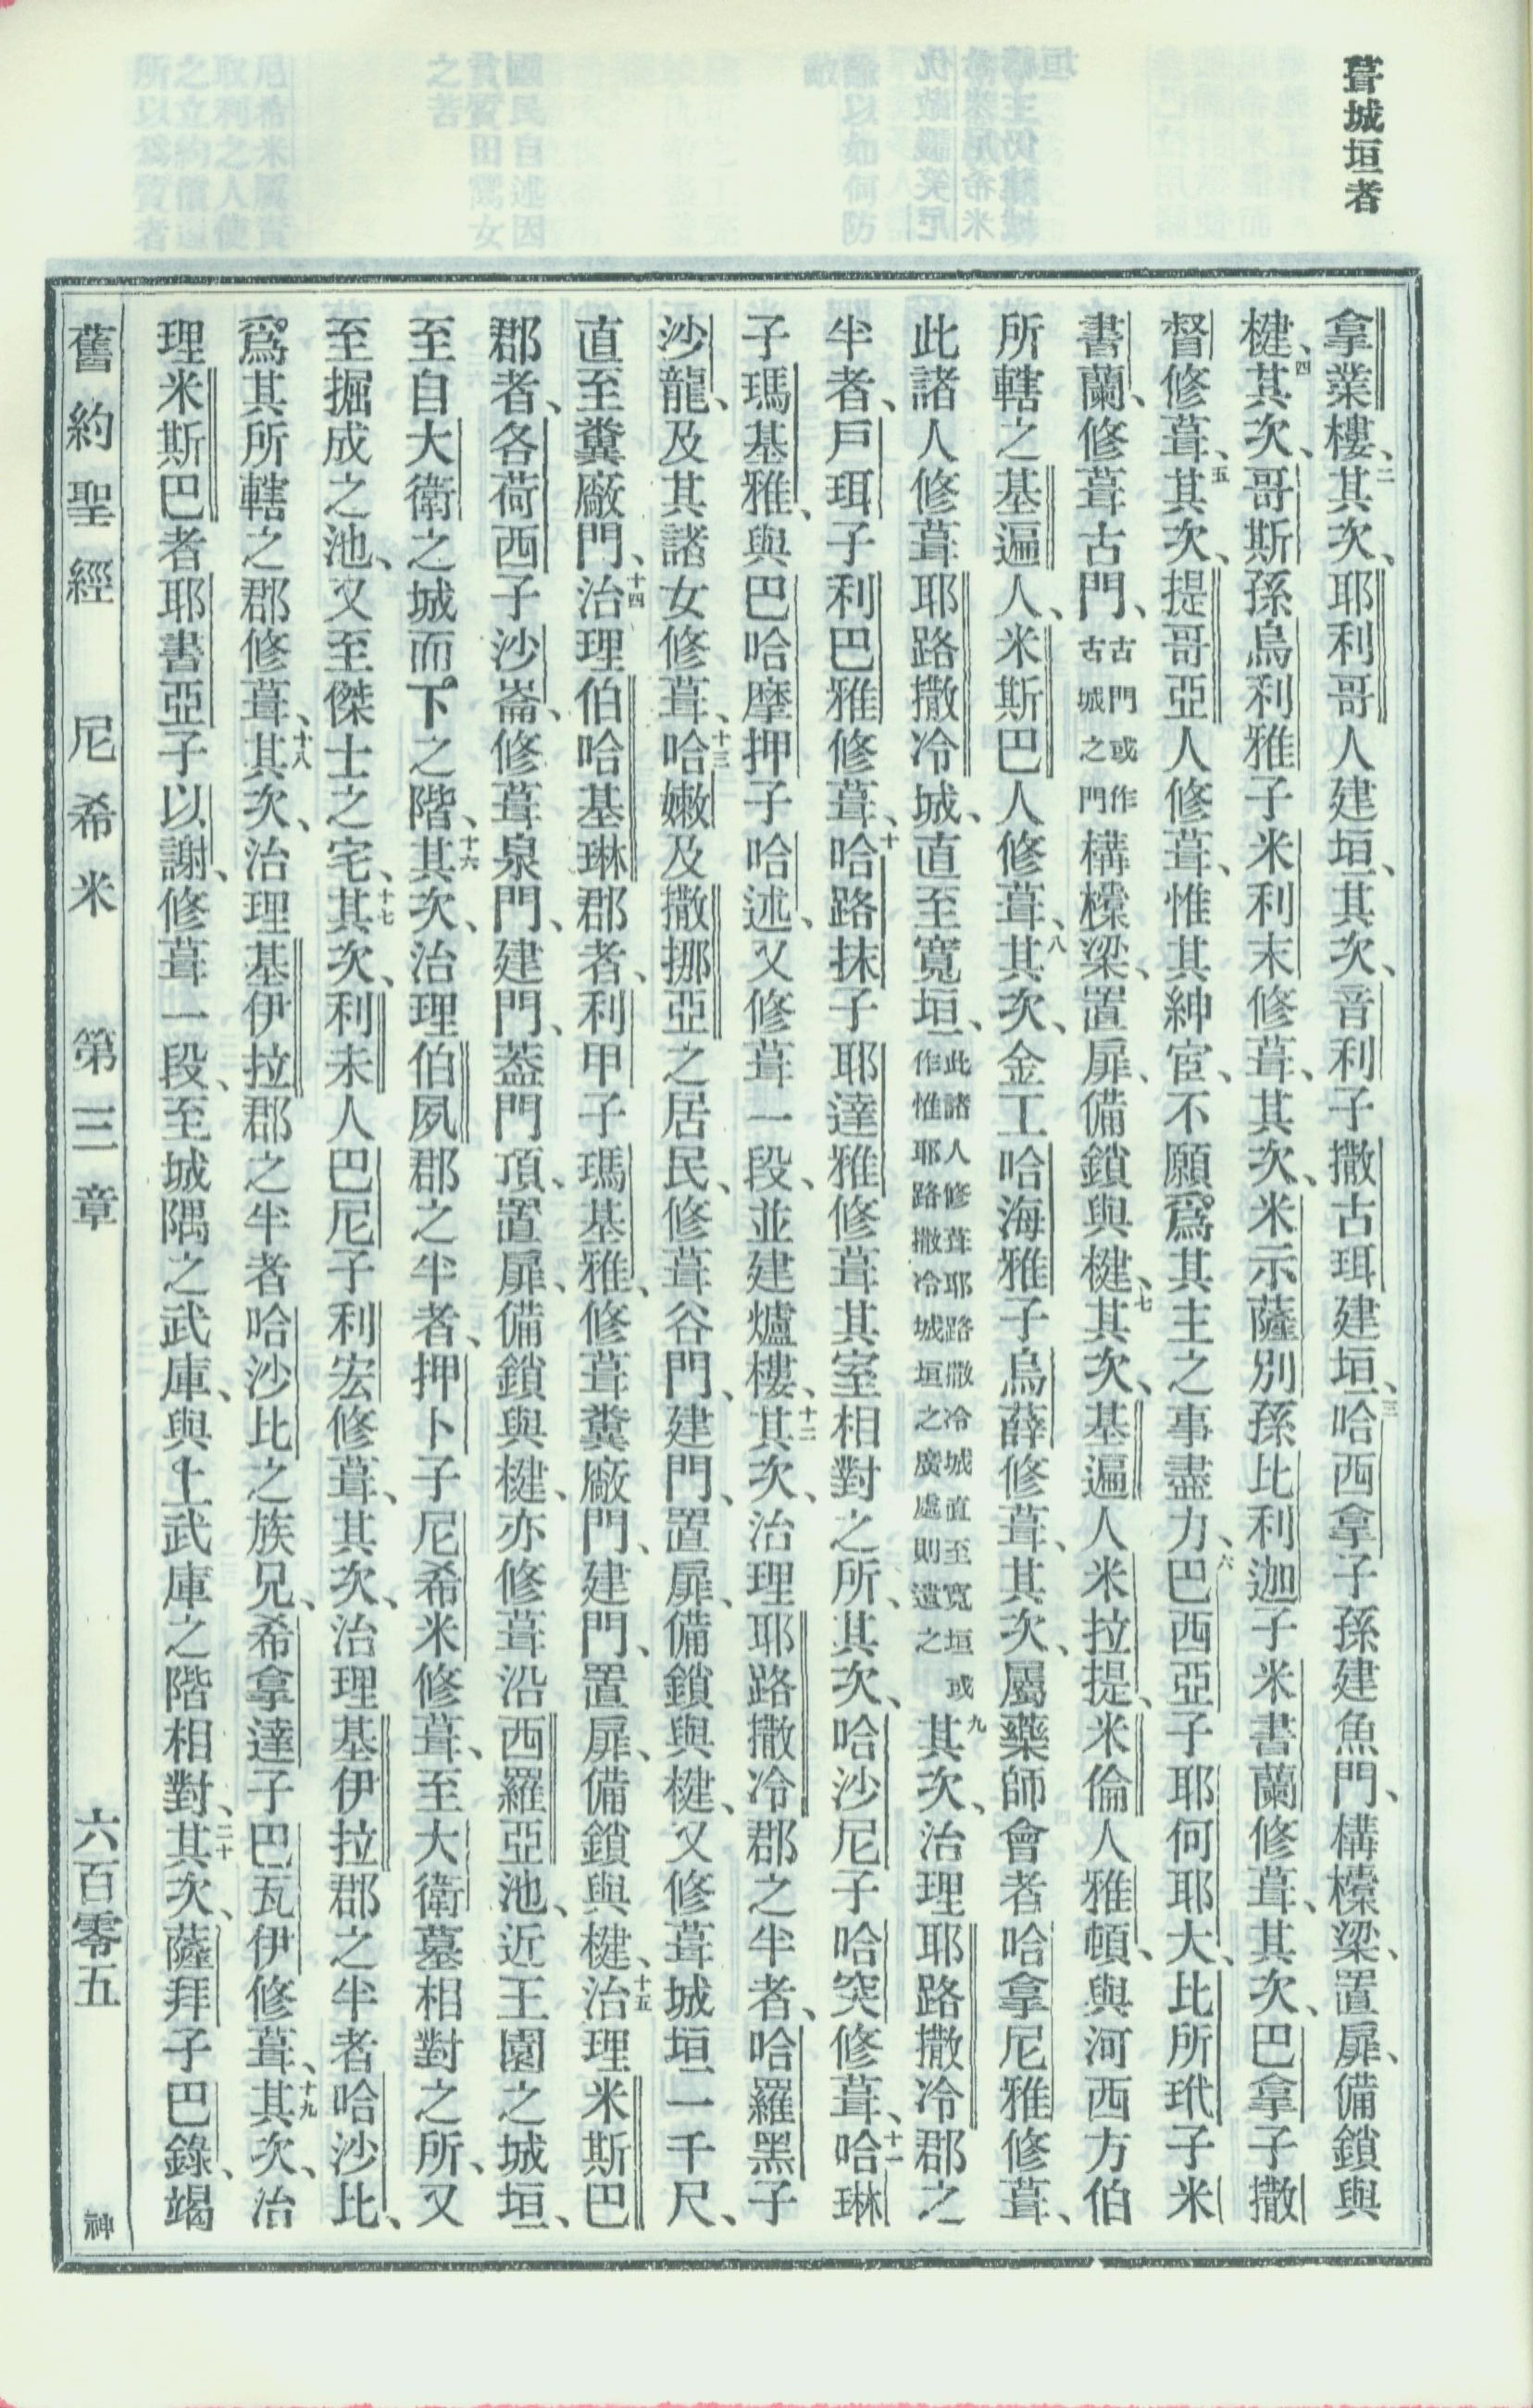 葺城垣者
拿業樓、二其次、耶利哥人建垣、其次、音利子撒古珥建垣、三哈西拿子孫建魚門、構檁梁、置扉、備鎖與
楗、四其次、哥斯孫烏利雅子米利末修葺、其次、米示薩別孫比利迦子米書蘭修葺、其次、巴拿子撒
督修葺、五其次、提哥亞人修葺、惟其紳宦、不願爲其主之事盡力、六巴西亞子耶何耶大、比所玳子米
書蘭、修葺古門、古門或作古城之門構檁梁、置扉、備鎖與楗、七其次、基遍人米拉提、米倫人雅頓、與河西方伯
所轄之基遍人、米斯巴人修葺、八其次、金工哈海雅子烏薛修葺、其次、屬藥師會者哈拿尼雅修葺、
此諸人修葺耶路撒冷城、直至寬垣、此諸人修葺耶路撒冷城直至寬垣或作惟耶路撒冷城垣之廣處則遺之九其次、治理耶路撒冷郡之
半者、戶珥子利巴雅修葺、十哈路抹子耶達雅修葺其室相對之所、其次、哈沙尼子哈突修葺、十一哈琳
子瑪基雅、與巴哈摩押子哈述、又修葺一段、並建爐樓、十二其次、治理耶路撒冷郡之半者、哈羅黑子
沙龍、及其諸女修葺、十三哈嫩及撒挪亞之居民、修葺谷門、建門、置扉、備鎖與楗、又修葺城垣一千尺、
直至糞廠門、十四治理伯哈基琳郡者、利甲子瑪基雅、修葺糞廠門、建門、置扉、備鎖與楗、十五治理米斯巴
郡者、各荷西子沙崙、修葺泉門、建門、葢門頂、置扉、備鎖與楗、亦修葺沿西羅亞池、近王園之城垣、
至自大衛之城而下之階、十六其次、治理伯夙郡之半者、押卜子尼希米修葺、至大衛墓相對之所、又
至掘成之池、又至傑士之宅、十七其次、利未人巴尼子利宏修葺、其次、治理基伊拉郡之半者哈沙比、
爲其所轄之郡修葺、十八其次、治理基伊拉郡之半者哈沙比之族兄、希拿達子巴瓦伊修葺、十九其次、治
理米斯巴者耶書亞子以謝、修葺一段、至城隅之武庫、與上武庫之階相對、二十其次、薩拜子巴錄、竭
舊約聖經 尼希米 第三章 六百零五 神